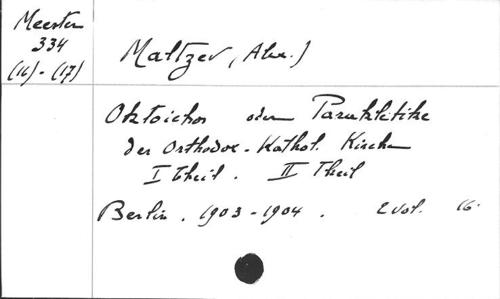 Meester
334
(16)-(17)
Maltzev, Alex.)
Oktoichos oder Parakletike
der Orthodox-Kathol. Kirche
I Theil. II Theil
Berlin. 1903-1904. 2 vol. 16.